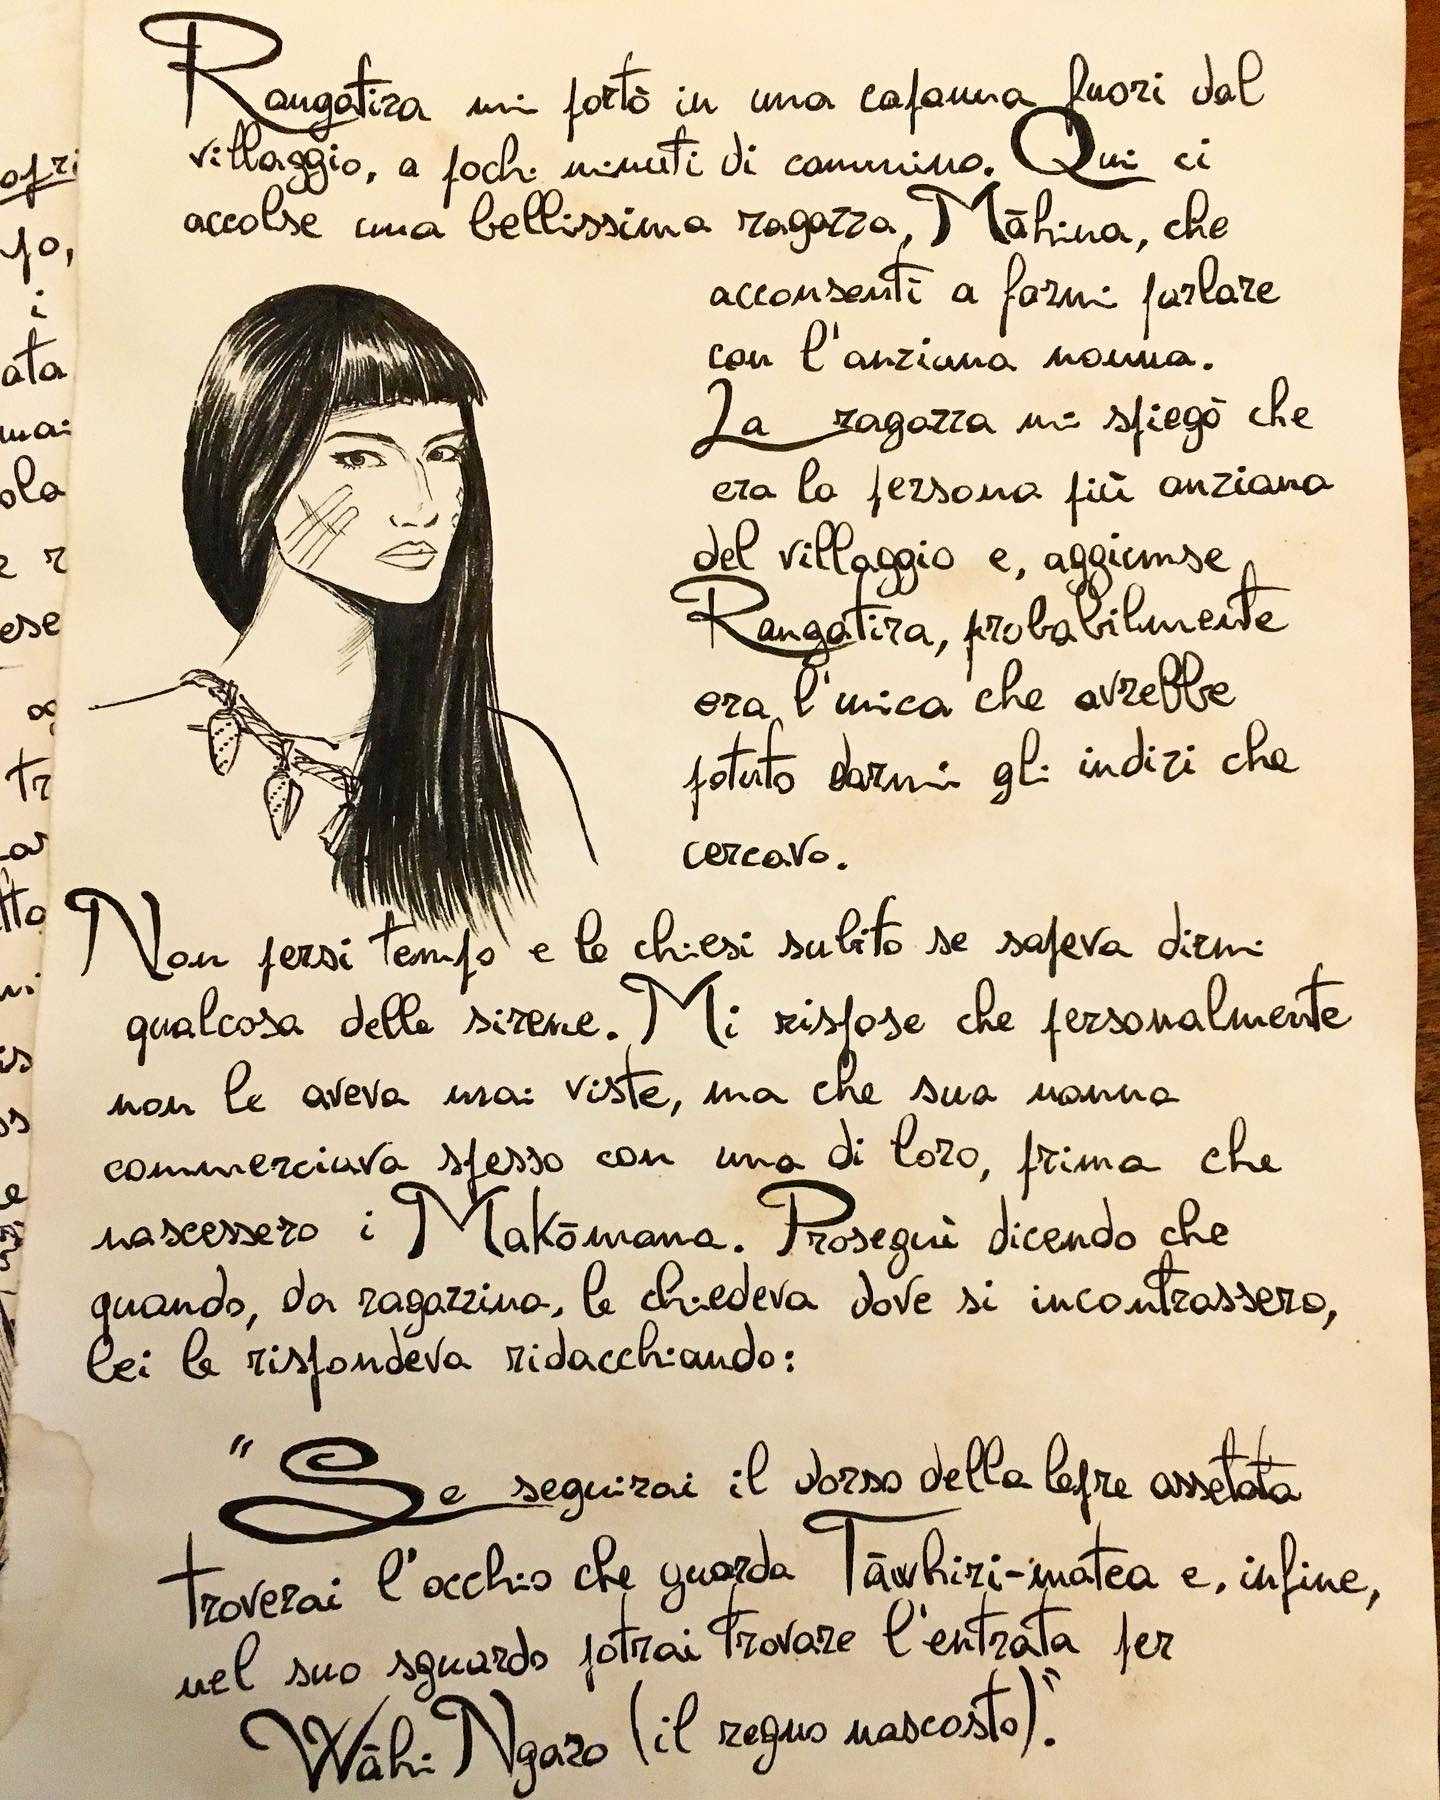 Rangatira mi portò in una capanna fuori dal
villaggio, a pochi minuti di cammino. Qui ci
accolse una bellissima ragazza, Māhina, che
acconsentì a farmi parlare
con l'anziana nonna.
La ragazza mi spiegò che
era la persona più anziana
del villaggio e, aggiunse
Rangatira, probabilmente
era l'unica che avrebbe
potuto darmi gli indizi che
cercavo.
Non persi tempo e le chiesi subito se sapeva dirmi
qualcosa delle sirene. Mi rispose che personalmente
non le aveva mai viste, ma che sua nonna
commerciava spesso con una di loro, prima che
nascessero i Makōmana. Proseguì dicendo che
quando, da ragazzina, le chiedeva dove si incontrassero,
lei le rispondeva ridacchiando:
"Se seguirai il dorso della lepre assetata
troverai l'occhio che guarda Tāwhiri-matea e, infine,
nel suo sguardo potrai trovare l'entrata per
Wāhi Ngaro (il regno nascosto)".